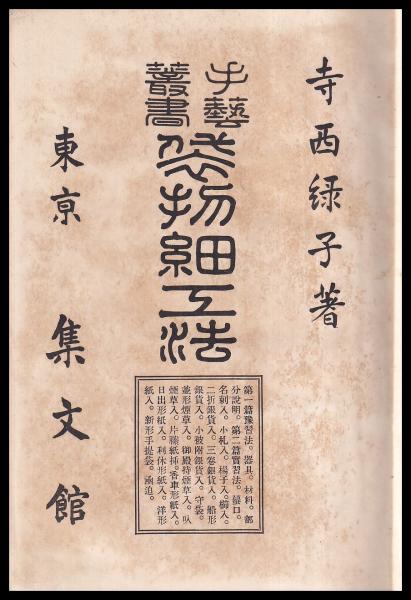 寺西緑子著
手藝
叢書
袋物細工法
第一篇豫習法。器具。材料。部
分說明。第二篇實習法。蟇口。
名刺入。小札入。楊子入。櫛入。
二折銀貨入。三卷銀貨入。船形
銀貨入。小被附銀貨入。守袋。
菱形煙草入。御殿持煙草入。叺
煙草入。片襠紙挿。香車形紙入。
日出形紙入。利休形紙入。洋形
紙入。新形手提袋。凾迫。
東京 集文館